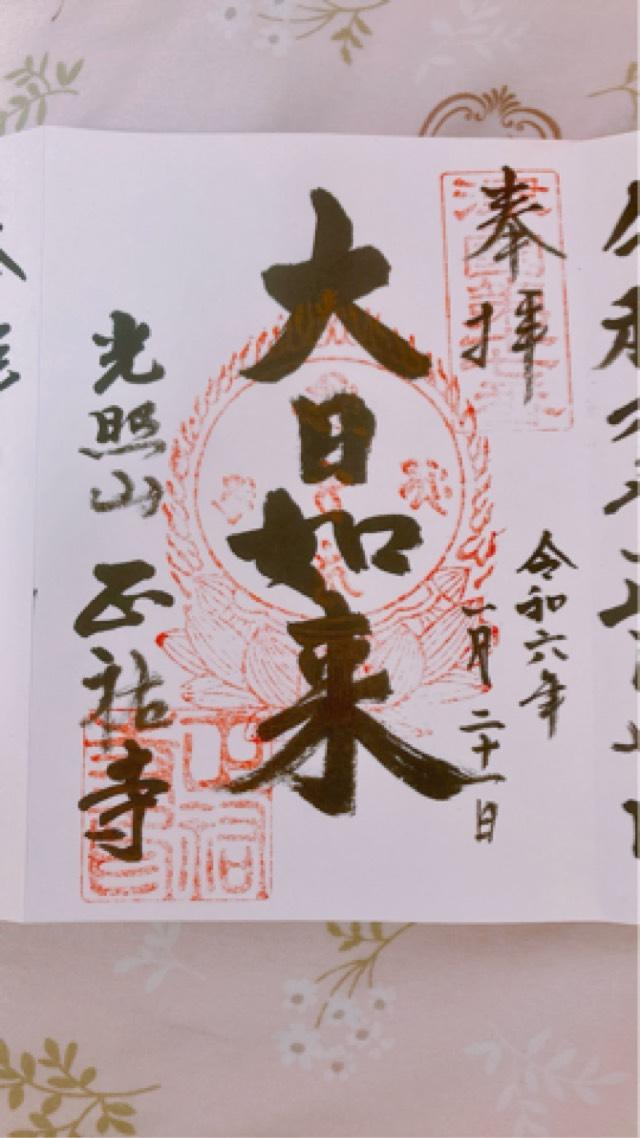 奉拝
令和六年
一月二十一日
大日如来
光照山 正祐寺